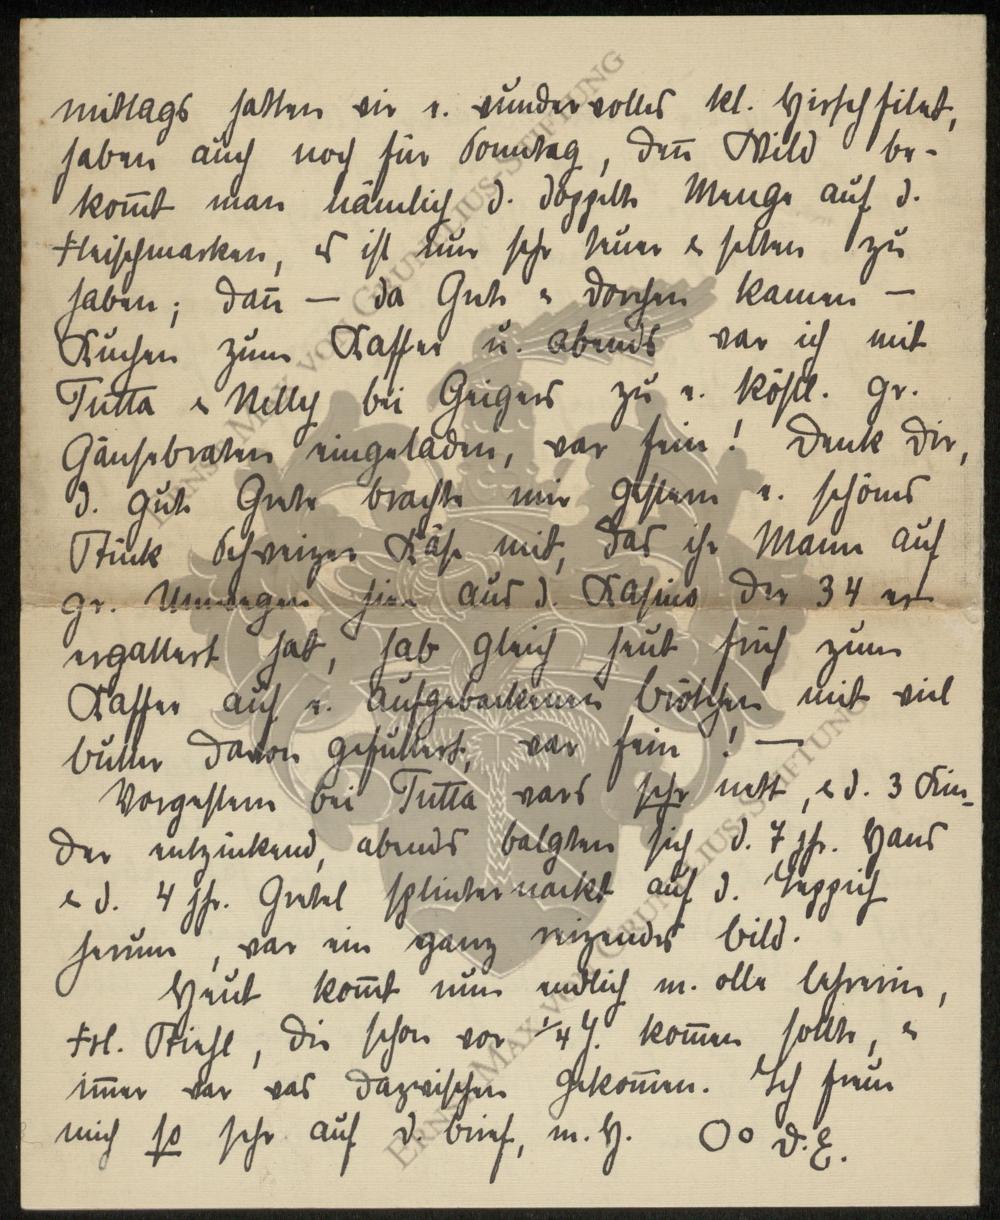 mittags hatten wir e. wundervolles kl. Hirschfilet,
haben auch noch für Sonntag, den̄ Wild be-
kom̄t man nämlich d. doppelte Menge auf d.
Fleischmarken, es ist nur sehr teuer & selten zu
haben; dan̄ — da Grete & Dorchen kamen —
Kuchen zum Kaffee u. abends war ich mit
Tutta & Nelly bei Geigers zu e. köstl. gr.
Gänsebraten eingeladen, war fein! Denk Dir,
d. gute Grete brachte mir gestern e. schönes
Stück Schweizer Käse mit, das ihr Mann auf
gr. Umwegen hier aus d. Kasino der 34 er
ergattert hat, hab gleich heut früh zum
Kaffee auf e. aufgebackenen Brötchen mit viel
Butter davon gefuttert, war fein! —
Vorgestern bei Tutta wars sehr nett, & d. 3 Kin-
der entzückend, abends balgten sich d. 7 jhr. Hans
& d. 4 jhr. Gretel splinternackt auf d. Teppich
herum, war ein ganz reizendes Bild.
Heut kom̄t nun endlich m. olle Lehrerin,
Frl. Stiehl, die schon vor ¼ J. kom̄en sollte, &
im̄er war was dazwischen gekom̄en. Ich freue
mich so sehr auf d. Brief, m. H. Oo D. E.
ERNST MAX VON GRUNELIUS-STIFTUNG
ERNST MAX VON GRUNELIUS-STIFTUNG